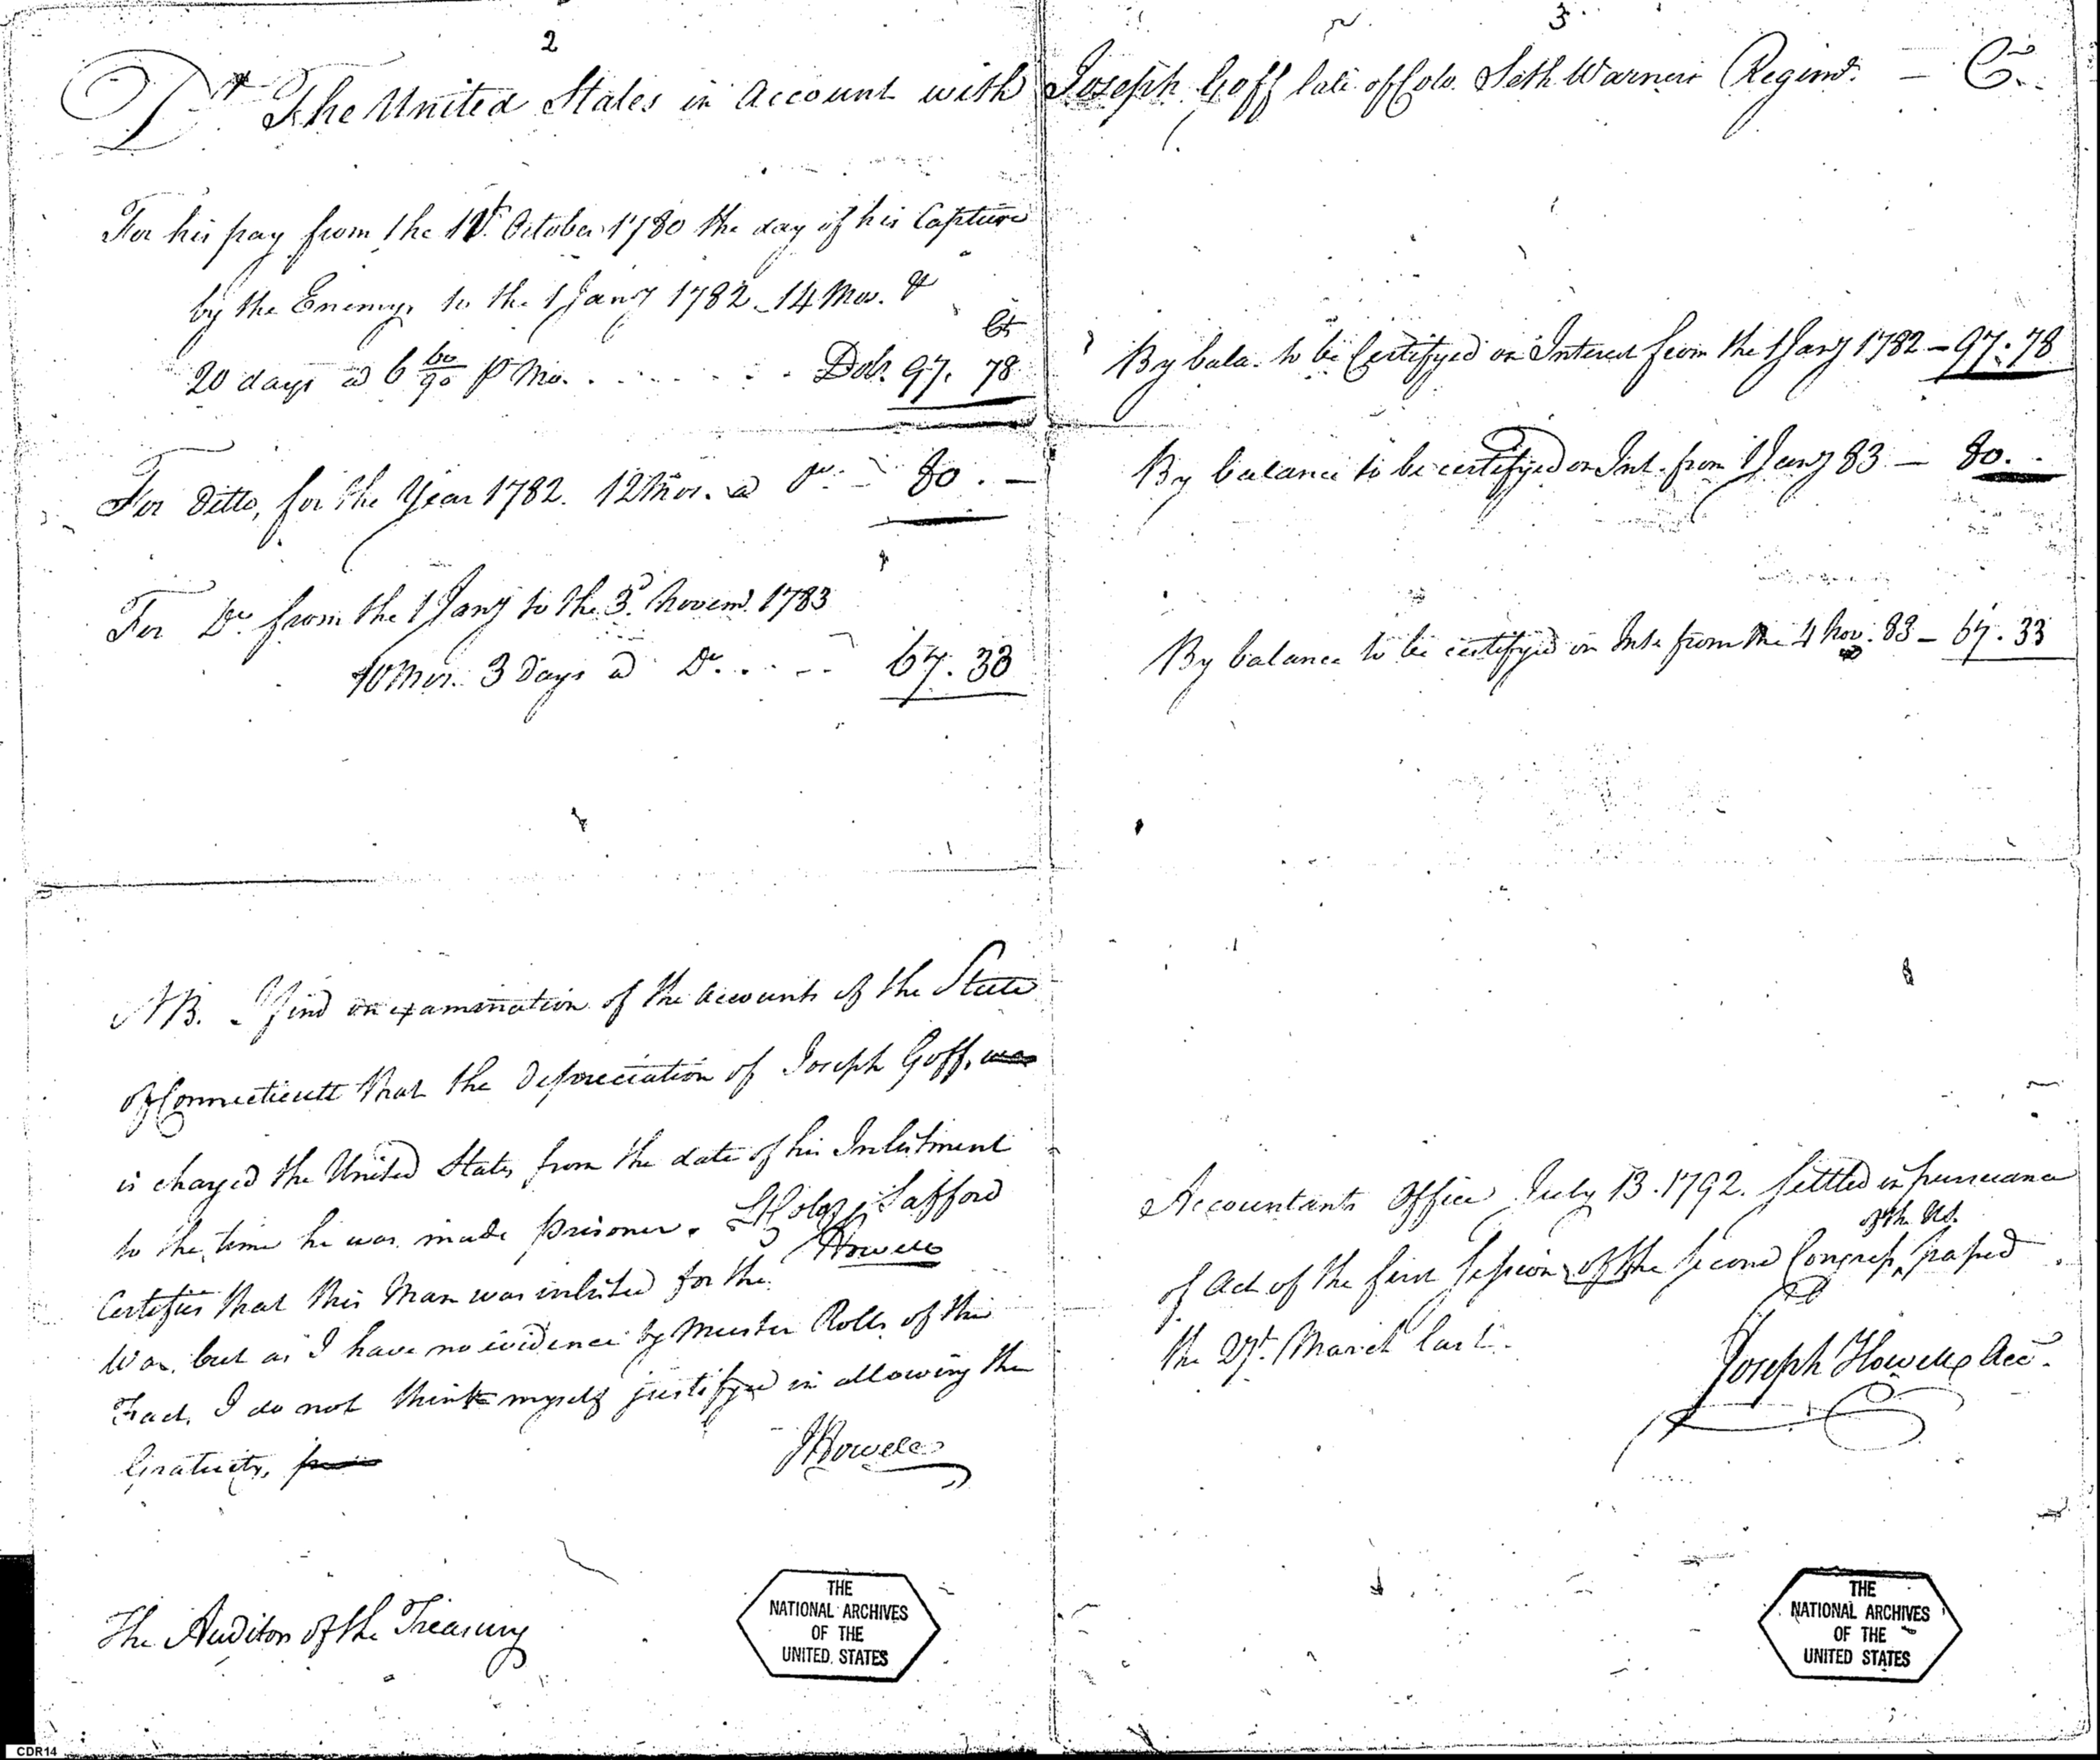 2
Dr The United States in Account with
For his pay from the 11th October 1780 the day of his Capture
by the Enemy, to the 1 Jany 1782 - 14 Mos. &
Cts
20 days @ 6 60/90 P Mo. . . . . . . Dols. 97. 78
For Ditto, for the Year 1782. 12 Mos. @ Do. - 80 . -
For Do. from the 1 Jany to the 3d. Novemr. 1783
10 Mos. 3 Days @ Do. . . . 67. 33
NB. I find on examination of the accounts of the State
of Connecticutt that the depreciation of Joseph Goff, was
is charged the United States from the date of his Inlistment
to the time he was made prisoner. Safford
Howell
Certifies that this Man was inlisted for the
War, but as I have no evidence by Muster Rolls of this
Fact, I do not think myself justifyed in allowing the
Gratuity,
JHowell
The Auditor of the Treasury
THE
NATIONAL ARCHIVES
OF THE
UNITED STATES
CDR14
3
Joseph Goff late of Colo. Seth Warners Regimt. - Cr.
By bala. to be Certifyed on Interest from the 1 Jany 1782 - 97. 78
By balance to be certifyed on Int. from 1 Jany 83 - 80. -
By balance to be certifyed on Inte from the 4 Nov. 83 - 67. 33
Accountants Office July 13. 1792. Settled in pursuance
of the US.
of Act of the first Session of the second Congress, passed
the 27t. March last.
Joseph Howell Acct.
THE
NATIONAL ARCHIVES
OF THE
UNITED STATES